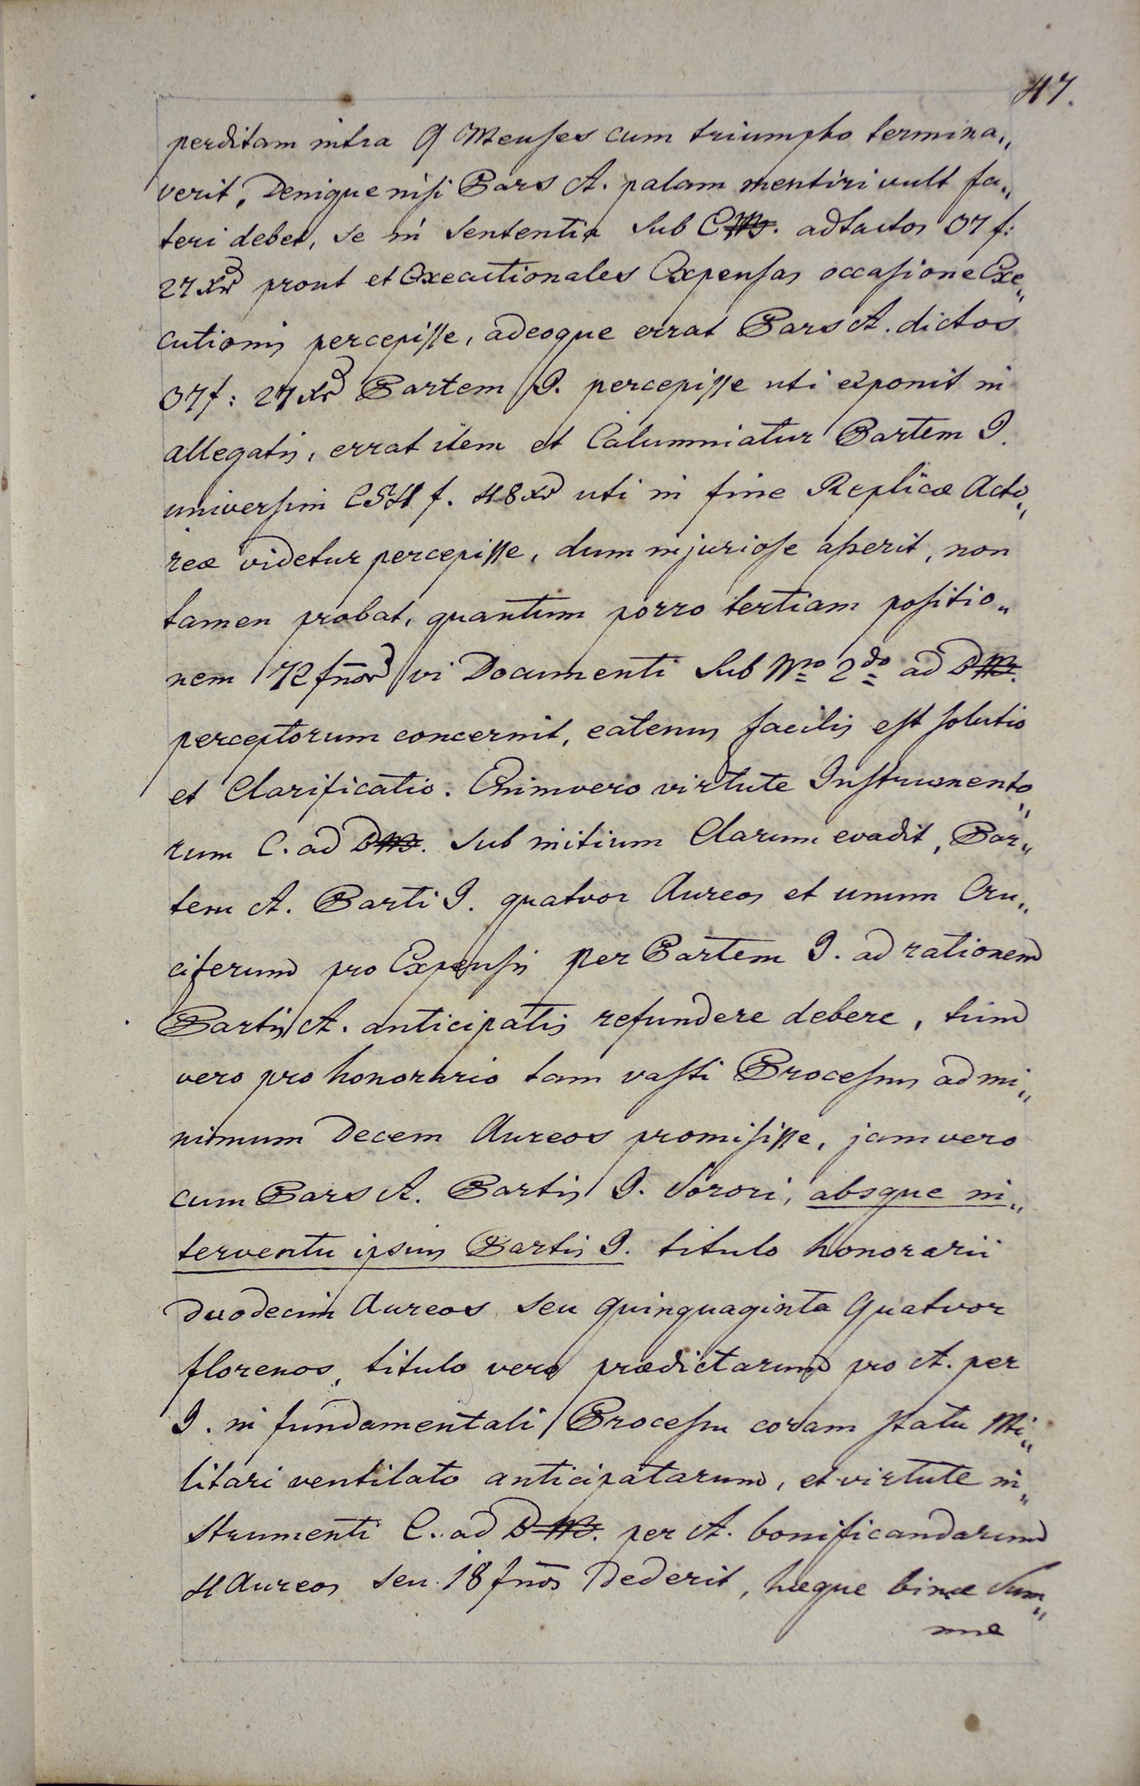 47.
perditam intra 9 Menses cum triumpho termina„
verit, Denique nisi Pars A. palam mentiri vult fa„
teri debet, se in Sententia Sub C. adtactos 37 f:
27 xr prout et Executionales Expensas occasione Exe„
cutionis percepisse, adeoque errat Pars A. dictos
37 f: 27 xr Partem I. percepisse uti exponit in
allegatis, errat item et Calumniatur Partem I.
universim f. 48 xr uti in fine Replicæ Acto„
reæ videtur percepisse, dum injuriose asserit, non
tamen probat, quantum porro tertiam positio„
nem 72 fnor vi Documenti Sub Nro 2do ad D
perceptorum concernit, eatenus facilis est solutio
et Clarificatio. Enimvero virtute Instrumento„
rum C. ad D Sub initium Clarum evadit, Par„
tem A. Parti I. quatvor Aureos et unum Cru„
ciferum pro Expensis per Partem I. ad rationem
Partis A. anticipatis refundere debere, tum
vero pro honorario tam vasti Processus ad mi„
nimum Decem Aureos promisisse, jam vero
cum Pars A. Partis I. Sorori, absque in„
terventu ipsius Partis I. titulo honorarii
duodecim Aureos seu quinquaginta quatvor
florenos, titulo vero prædictarum pro A. per
I. in fundamentali Processu coram statu Mi„
litari ventilato anticipatarum, et virtute in„
strumenti C. ad D per A. bonificandarum
4 Aureos seu 18 fnos Dederit, hæque binæ Sum„
mæ